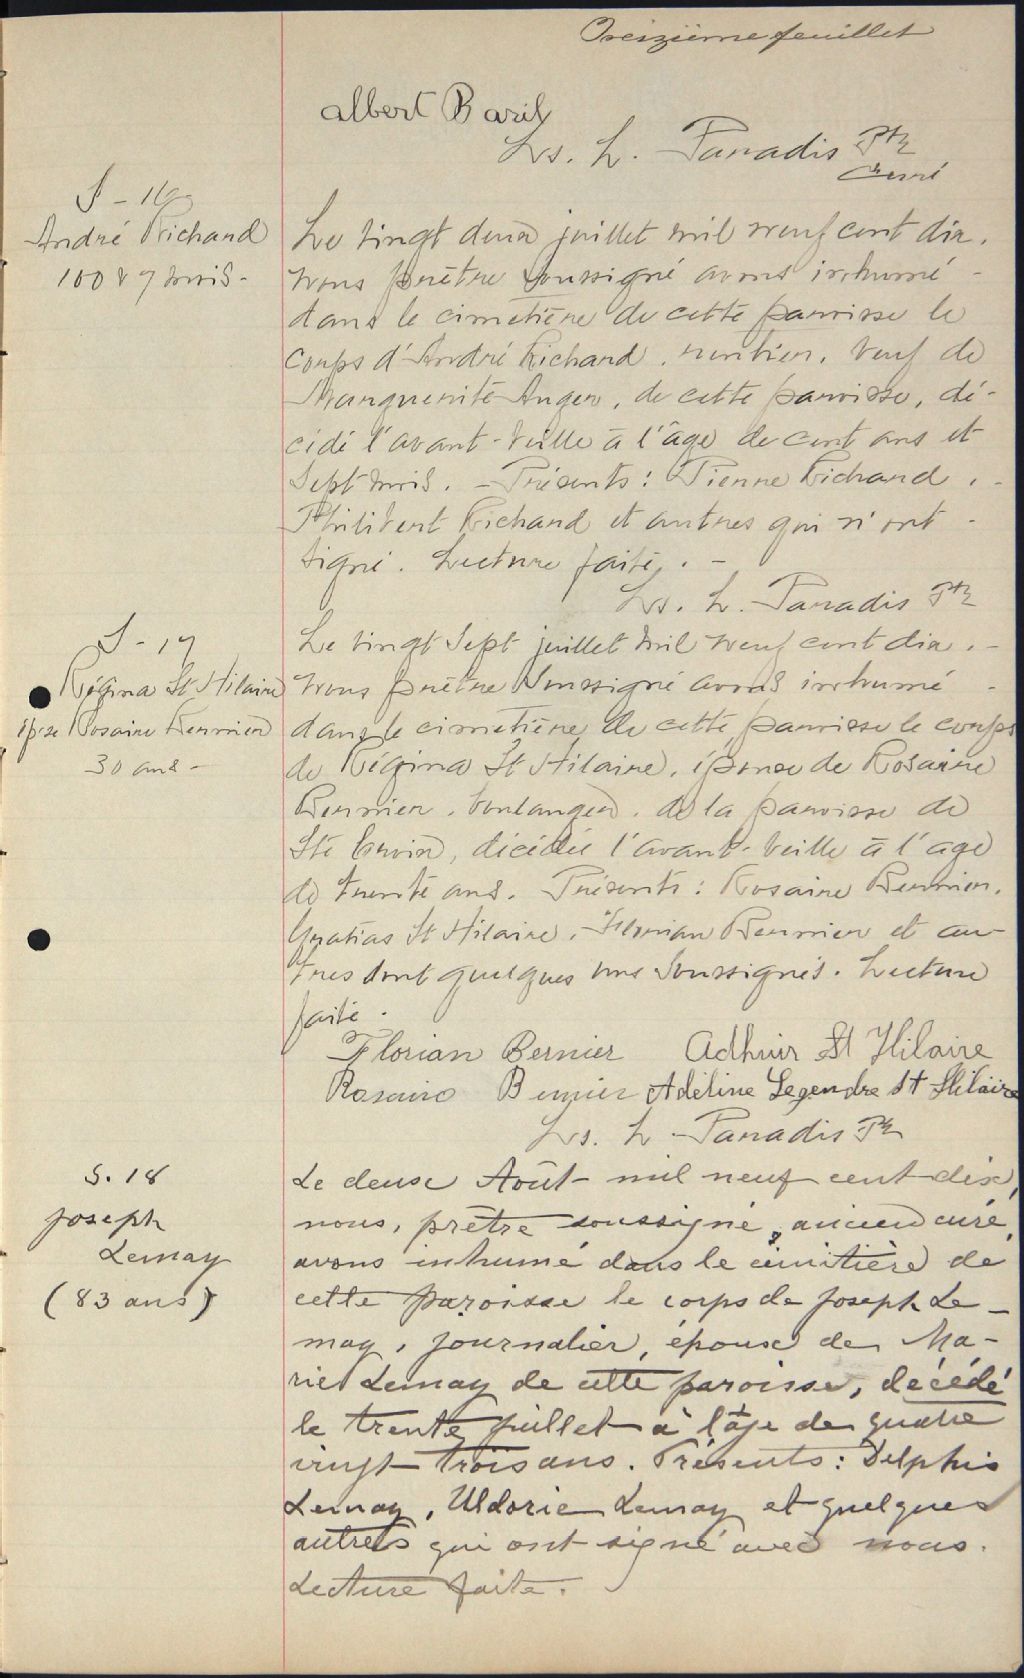 Treizième feuillet
Albert Baril
Ls. L. Paradis Ptr
curé
S - 16
André Richard
100 & 7 mois -
Le vingt deux juillet mil neuf cent dix.
nous prêtre soussigné avons inhumé -
dans le cimetière de cette paroisse le
corps d'André Richard, rentier, veuf de
Marguerite Auger, de cette paroisse, dé-
cédé l'avant-veille à l'âge de cent ans et
sept mois. - Présents: Pierre Richard, -
Philibert Richard et autres qui n'ont -
signé. Lecture faite. -
Ls. L. Paradis Ptr
S - 17
Régina St Hilaire
épse Rosaire Bernier
30 ans -
Le vingt sept juillet mil neuf cent dix. -
nous prêtre soussigné avons inhumé -
dans le cimetière de cette paroisse le corps
de Régina St Hilaire, épouse de Rosaire
Bernier, boulanger, de la paroisse de
Ste Croix, décédée l'avant-veille à l'age
de trente ans. Présents: Rosaire Bernier,
Gratias St Hilaire, Florian Bernier et au-
tres dont quelques uns soussignés. Lecture
faite.
Florian Bernier Adhuir St Hilaire
Rosario Bernier Adéline Legendre St Hilaire
Ls. L. Paradis Ptr
S. 18
Joseph
Lemay
(83 ans)
Le deux Août mil neuf cent dix,
nous, prêtre soussigné, ancien curé,
avons inhumé dans le cimitière de
cette paroisse le corps de Joseph Le-
may, journalier, époux de Ma-
rie Lemay de cette paroisse, décédé
le trente juillet à l'âge de quatre
vingt trois ans. Présents: Delphis
Lemay, Uldoric Lemay et quelques
autres qui ont signé avec nous.
Lecture faite.